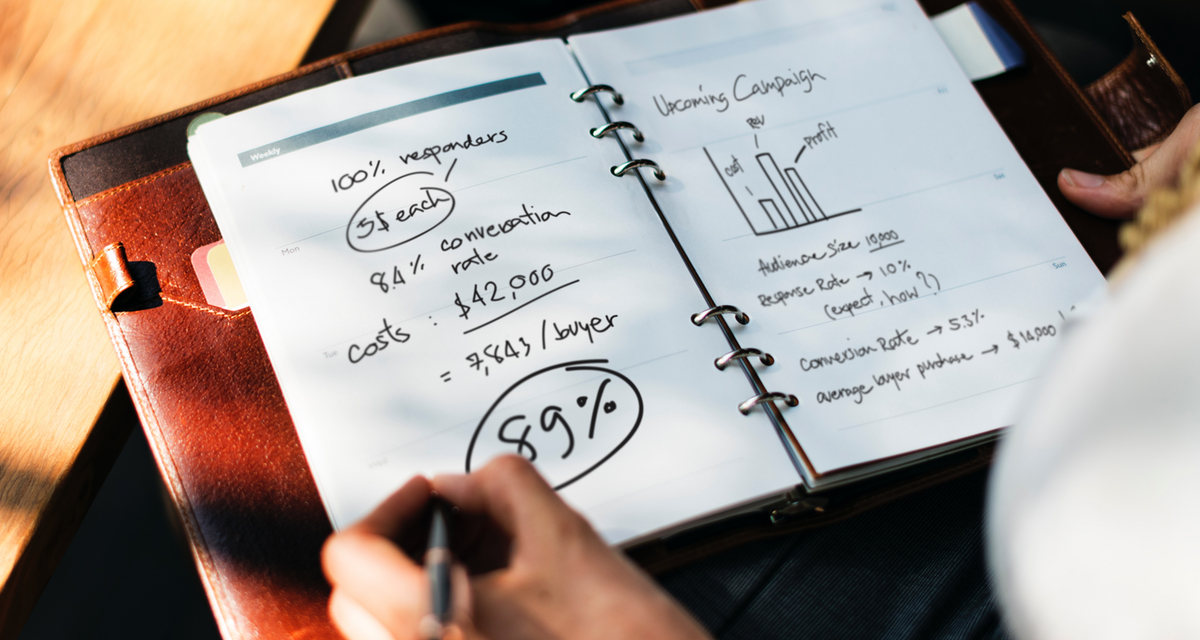 Weekly
100% responders
5$ each
Mon
8.4% conversation
rate
Tue
costs : $42,000
= 7,843/buyer
89%
Upcoming Campaign
Rev
cost
profit
Audience size 10,000
Sat
Response Rate → 10%
(expect, how?)
Sun
Conversion Rate → 5.3%
average buyer purchase → $14,000